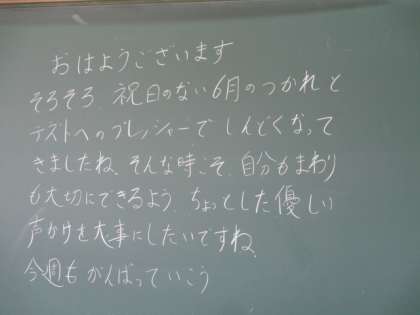 おはようございます
そろそろ、祝日のない6月のつかれと
テストへのプレッシャーでしんどくなって
きましたね、そんな時こそ、自分もまわり
も大切にできるよう、ちょっとした優しい
声かけを大事にしたいですね、
今週もがんばっていこう